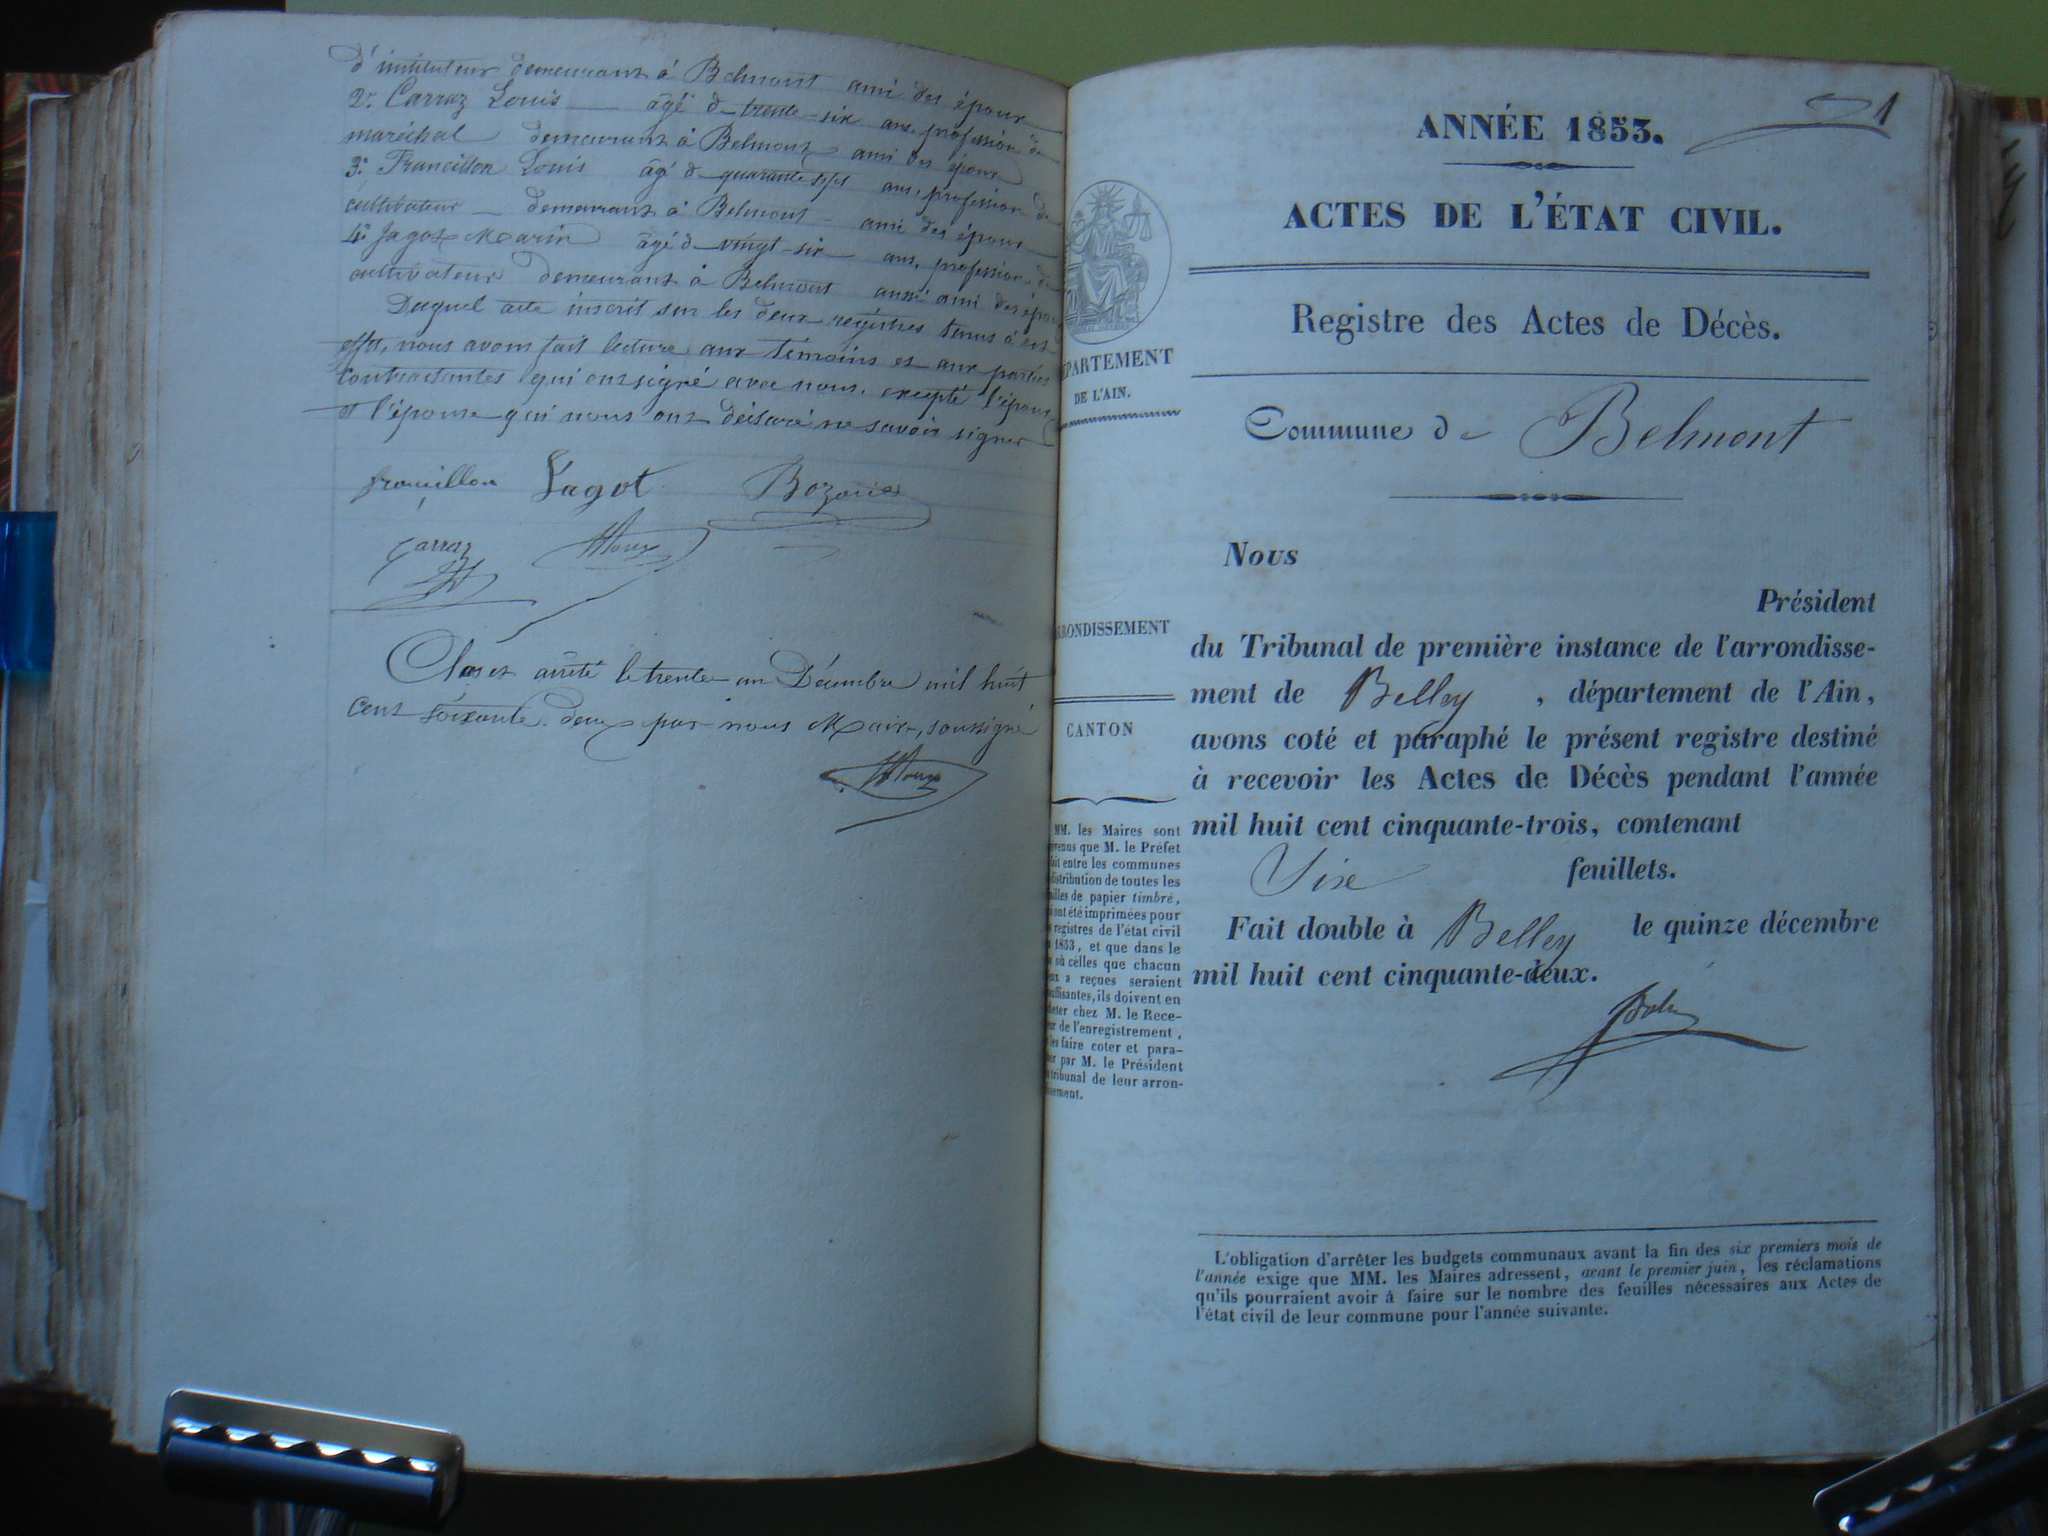 d'instituteur demeurant à Belmont ami des époux
2° Carraz Louis âgé de trente-six ans, profession de
maréchal demeurant à Belmont ami des époux
3° Francillon Louis âgé de quarante sept ans, profession de
cultivateur demeurant à Belmont ami des époux
4° Jagot Marin âgé de vingt-six ans, profession de
cultivateur demeurant à Belmont aussi ami des époux
Duquel acte inscrit sur les deux registres tenus à cet
effet, nous avons fait lecture aux témoins et aux parties
contractantes qui ont signé avec nous, excepté l'époux
et l'épouse qui nous ont déclaré ne savoir signer
francillon Jagot
Carraz
Clos et arrêté le trente un Décembre mil huit
cent soixante deux par nous Maire, soussigné
1
ANNÉE 1853.
ACTES DE L'ÉTAT CIVIL.
Registre des Actes de Décès.
Commune de Belmont
PARTEMENT
DE L'AIN.
RONDISSEMENT
CANTON
MM. les Maires sont
venus que M. le Préfet
fait entre les communes
distribution de toutes les
illes de papier timbré,
ont été imprimées pour
registres de l'état civil
1853, et que dans le
où celles que chacun
eux a reçues seraient
uffisantes, ils doivent en
eter chez M. le Rece-
ur de l'enregistrement,
les faire coter et para-
er par M. le Président
tribunal de leur arron-
ement.
Nous
Président
du Tribunal de première instance de l'arrondisse-
ment de Belley, département de l'Ain,
avons coté et paraphé le présent registre destiné
à recevoir les Actes de Décès pendant l'année
mil huit cent cinquante-trois, contenant
Six feuillets.
Fait double à Belley le quinze décembre
mil huit cent cinquante-deux.
L'obligation d'arrêter les budgets communaux avant la fin des six premiers mois de
l'année exige que MM. les Maires adressent, avant le premier juin, les réclamations
qu'ils pourraient avoir à faire sur le nombre des feuilles nécessaires aux Actes de
l'état civil de leur commune pour l'année suivante.